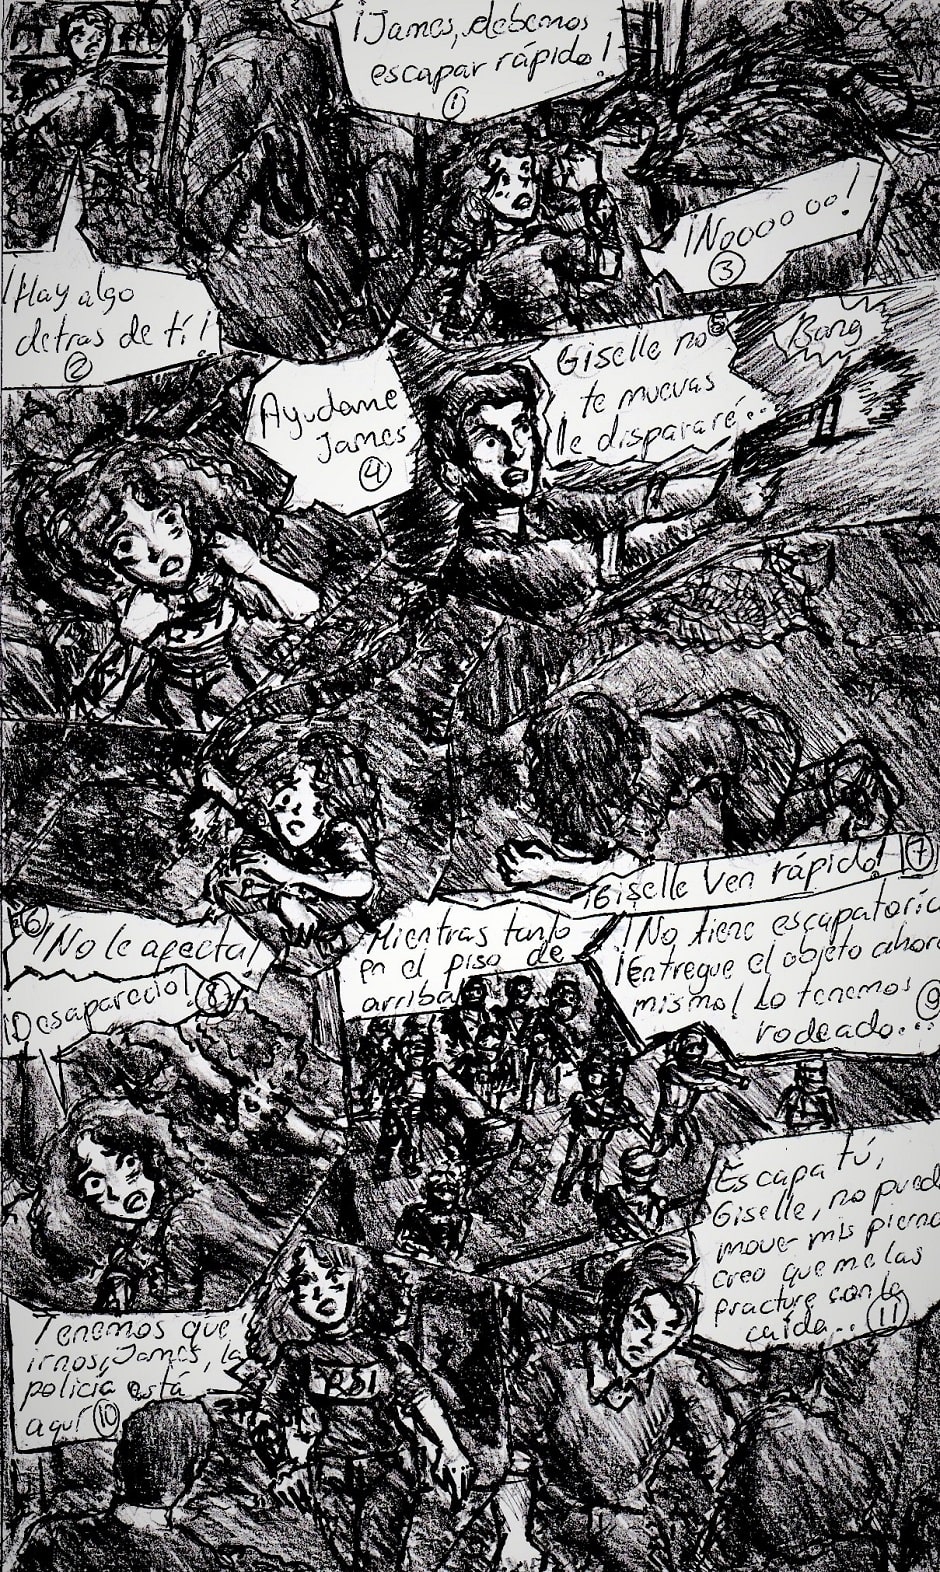 ¡James, debemos
escapar rápido!
①
¡Hay algo
detras de tí!
②
¡Nooooo!
③
Ayudame
James
④
Giselle no ⑤
te muevas
le dispararé...
Bang
⑥ ¡No le afecta!
¡Giselle Ven rápido! ⑦
¡Desaparecio! ⑧
Mientras tanto
en el piso de
arriba
¡No tiene escapatoria
¡Entregue el objeto ahora
mismo! Lo tenemos ⑨
rodeado...
Tenemos que
irnos, James, la
policía está
aquí ⑩
RSI
Escapa tú,
Giselle, no pued
mover mis pierna
creo que me las
fracture con la
caida... ⑪